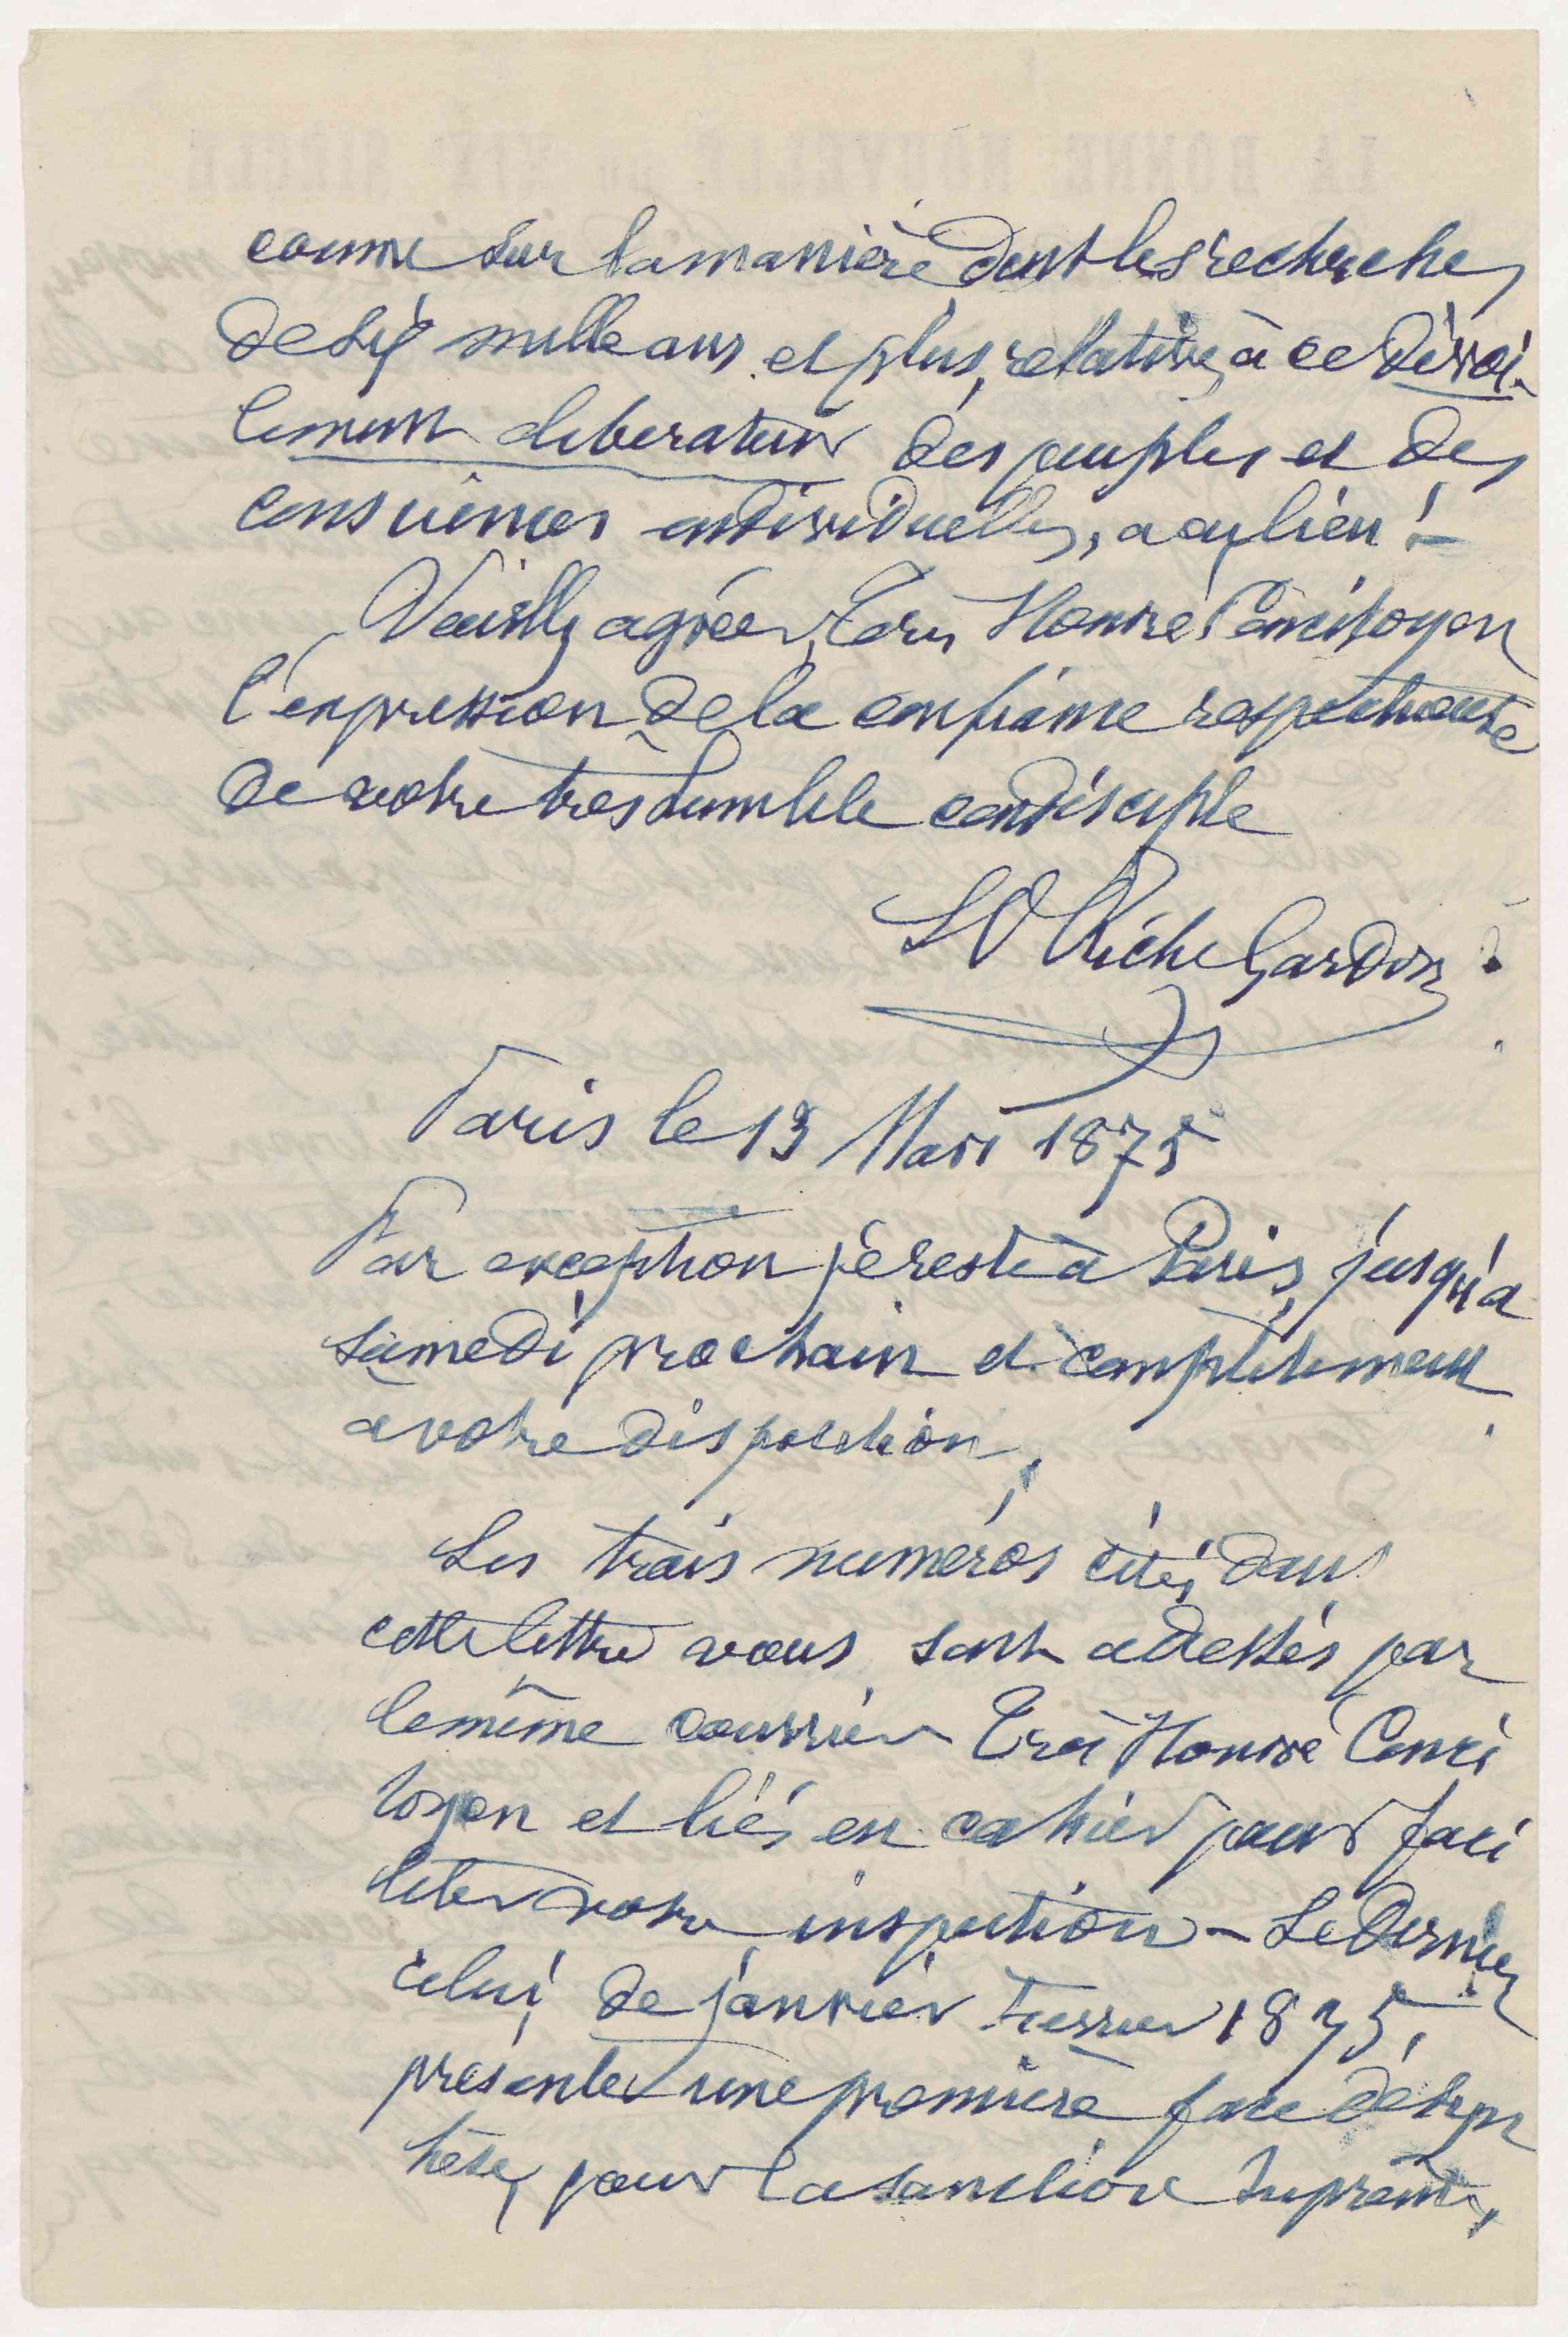 comme sur la manière dont les recherches
de six mille ans et plus, relatives à ce dévoi-
lement libérateur des peuples et des
consciences individuelles, a eu lieu !
Veuillez agréer, Très Honoré Concitoyen
l'expression de la confiance respectueuse
de votre très humble condisciple
LP Riche Gardon
Paris le 13 Mars 1875
Par exception je reste à Paris, jusqu'à
samedi prochain et complètement
à votre disposition.
Les trois numéros cités dans
cette lettre vous sont adressés par
le même courrier Très Honoré Conci
toyen et liés en cahier pour faci
liter votre inspection – Le dernier
celui de janvier Fevrier 1875,
présente une première face de syn
thèse, pour la sanction suprême,